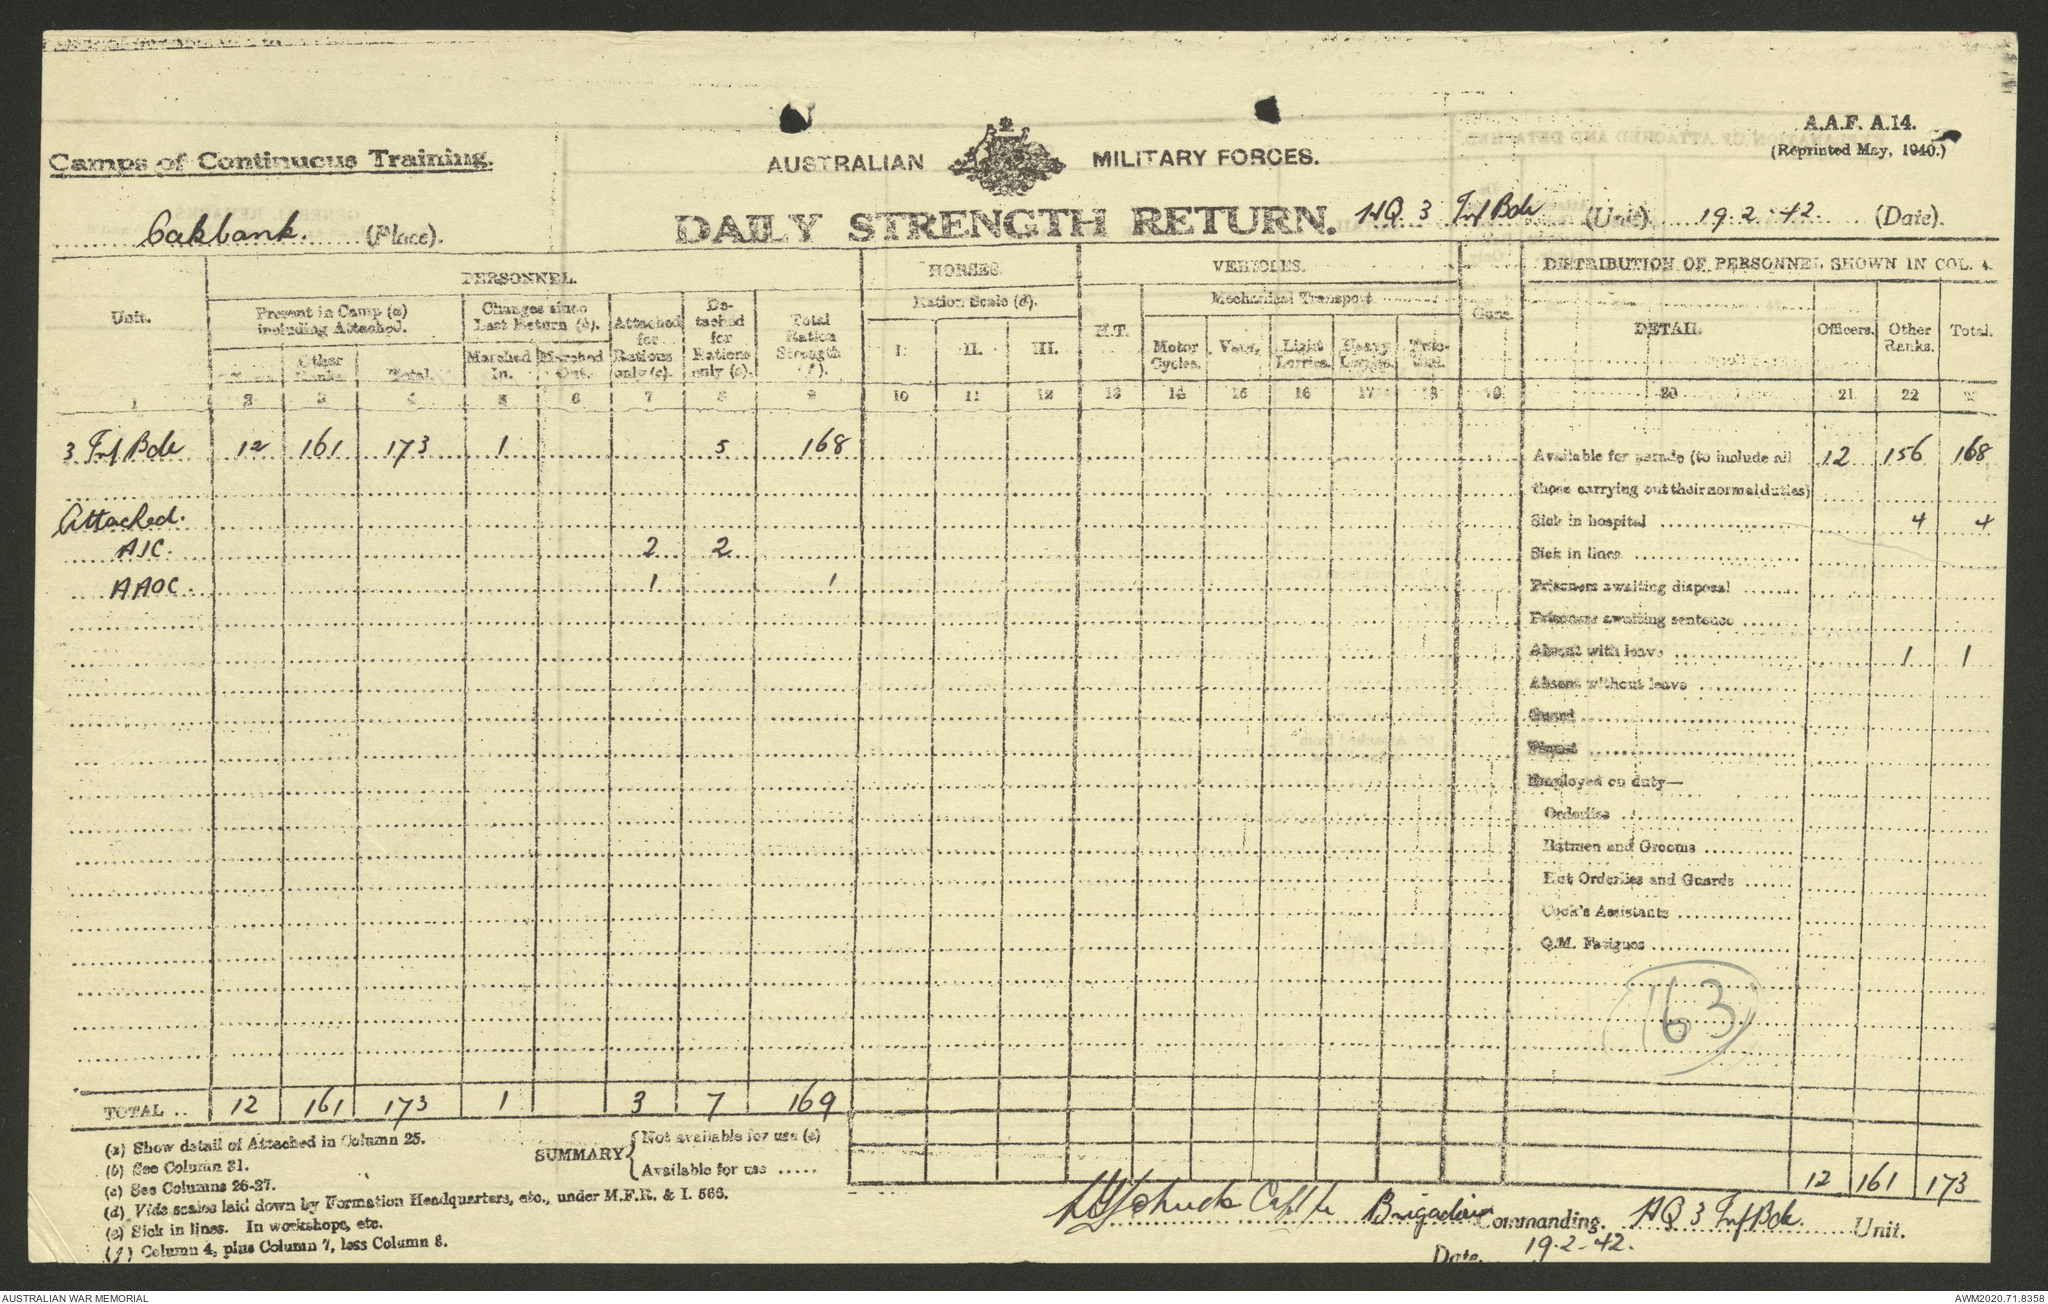 A.A.F. A.14.
(Reprinted May, 1940.)
Camps of Continuous Training.
AUSTRALIAN MILITARY FORCES.
Oakbank. (Place). DAILY STRENGTH RETURN. HQ. 3 Inf Bde (Unit) 19.2.42. (Date).
PERSONNEL. HORSES. VEHICLES. DISTRIBUTION OF PERSONNEL SHOWN IN COL. 4.
Unit. Present in Camp (a) including Attached. Changes since Last Return (b). Attached for Rations only (c). Detached for Rations only (c). Total Ration Strength (f). Ration Scale (d). H.T. Mechanical Transport Guns. DETAIL. Officers. Other Ranks. Total.
Other Ranks Total. Marched In. Marched Out. I. II. III. Motor Cycles. Vans. Light Lorries. Heavy Lorries.
1 2 3 4 5 6 7 8 9 10 11 12 13 14 15 16 17 18 19 20 21 22
3 Inf Bde 12 161 173 1 5 168 Available for parade (to include all 12 156 168
those carrying out their normal duties)
Attached. Sick in hospital 4 4
2 2 Sick in lines
AAOC 1 1 Prisoners awaiting disposal
Prisoners awaiting sentence
Absent with leave 1 1
Absent without leave
Guard
Piquet
Employed on duty—
Orderlies
Batmen and Grooms
Hut Orderlies and Guards
Cook's Assistants
Q.M. Fatigues
163
TOTAL .. 12 161 173 1 3 7 169
(a) Show detail of Attached in Column 25.
(b) See Column 31.
(c) See Columns 26-27.
(d) Vide scales laid down by Formation Headquarters, etc., under M.F.R. & I. 566.
(e) Sick in lines. In workshops, etc.
(f) Column 4, plus Column 7, less Column 8.
SUMMARY { Not available for use (e)
Available for use .....
12 161 173
Capt for Brigadier Commanding. HQ 3 Inf Bde. Unit.
Date. 19.2.42.
AUSTRALIAN WAR MEMORIAL
AWM2020.71.8358